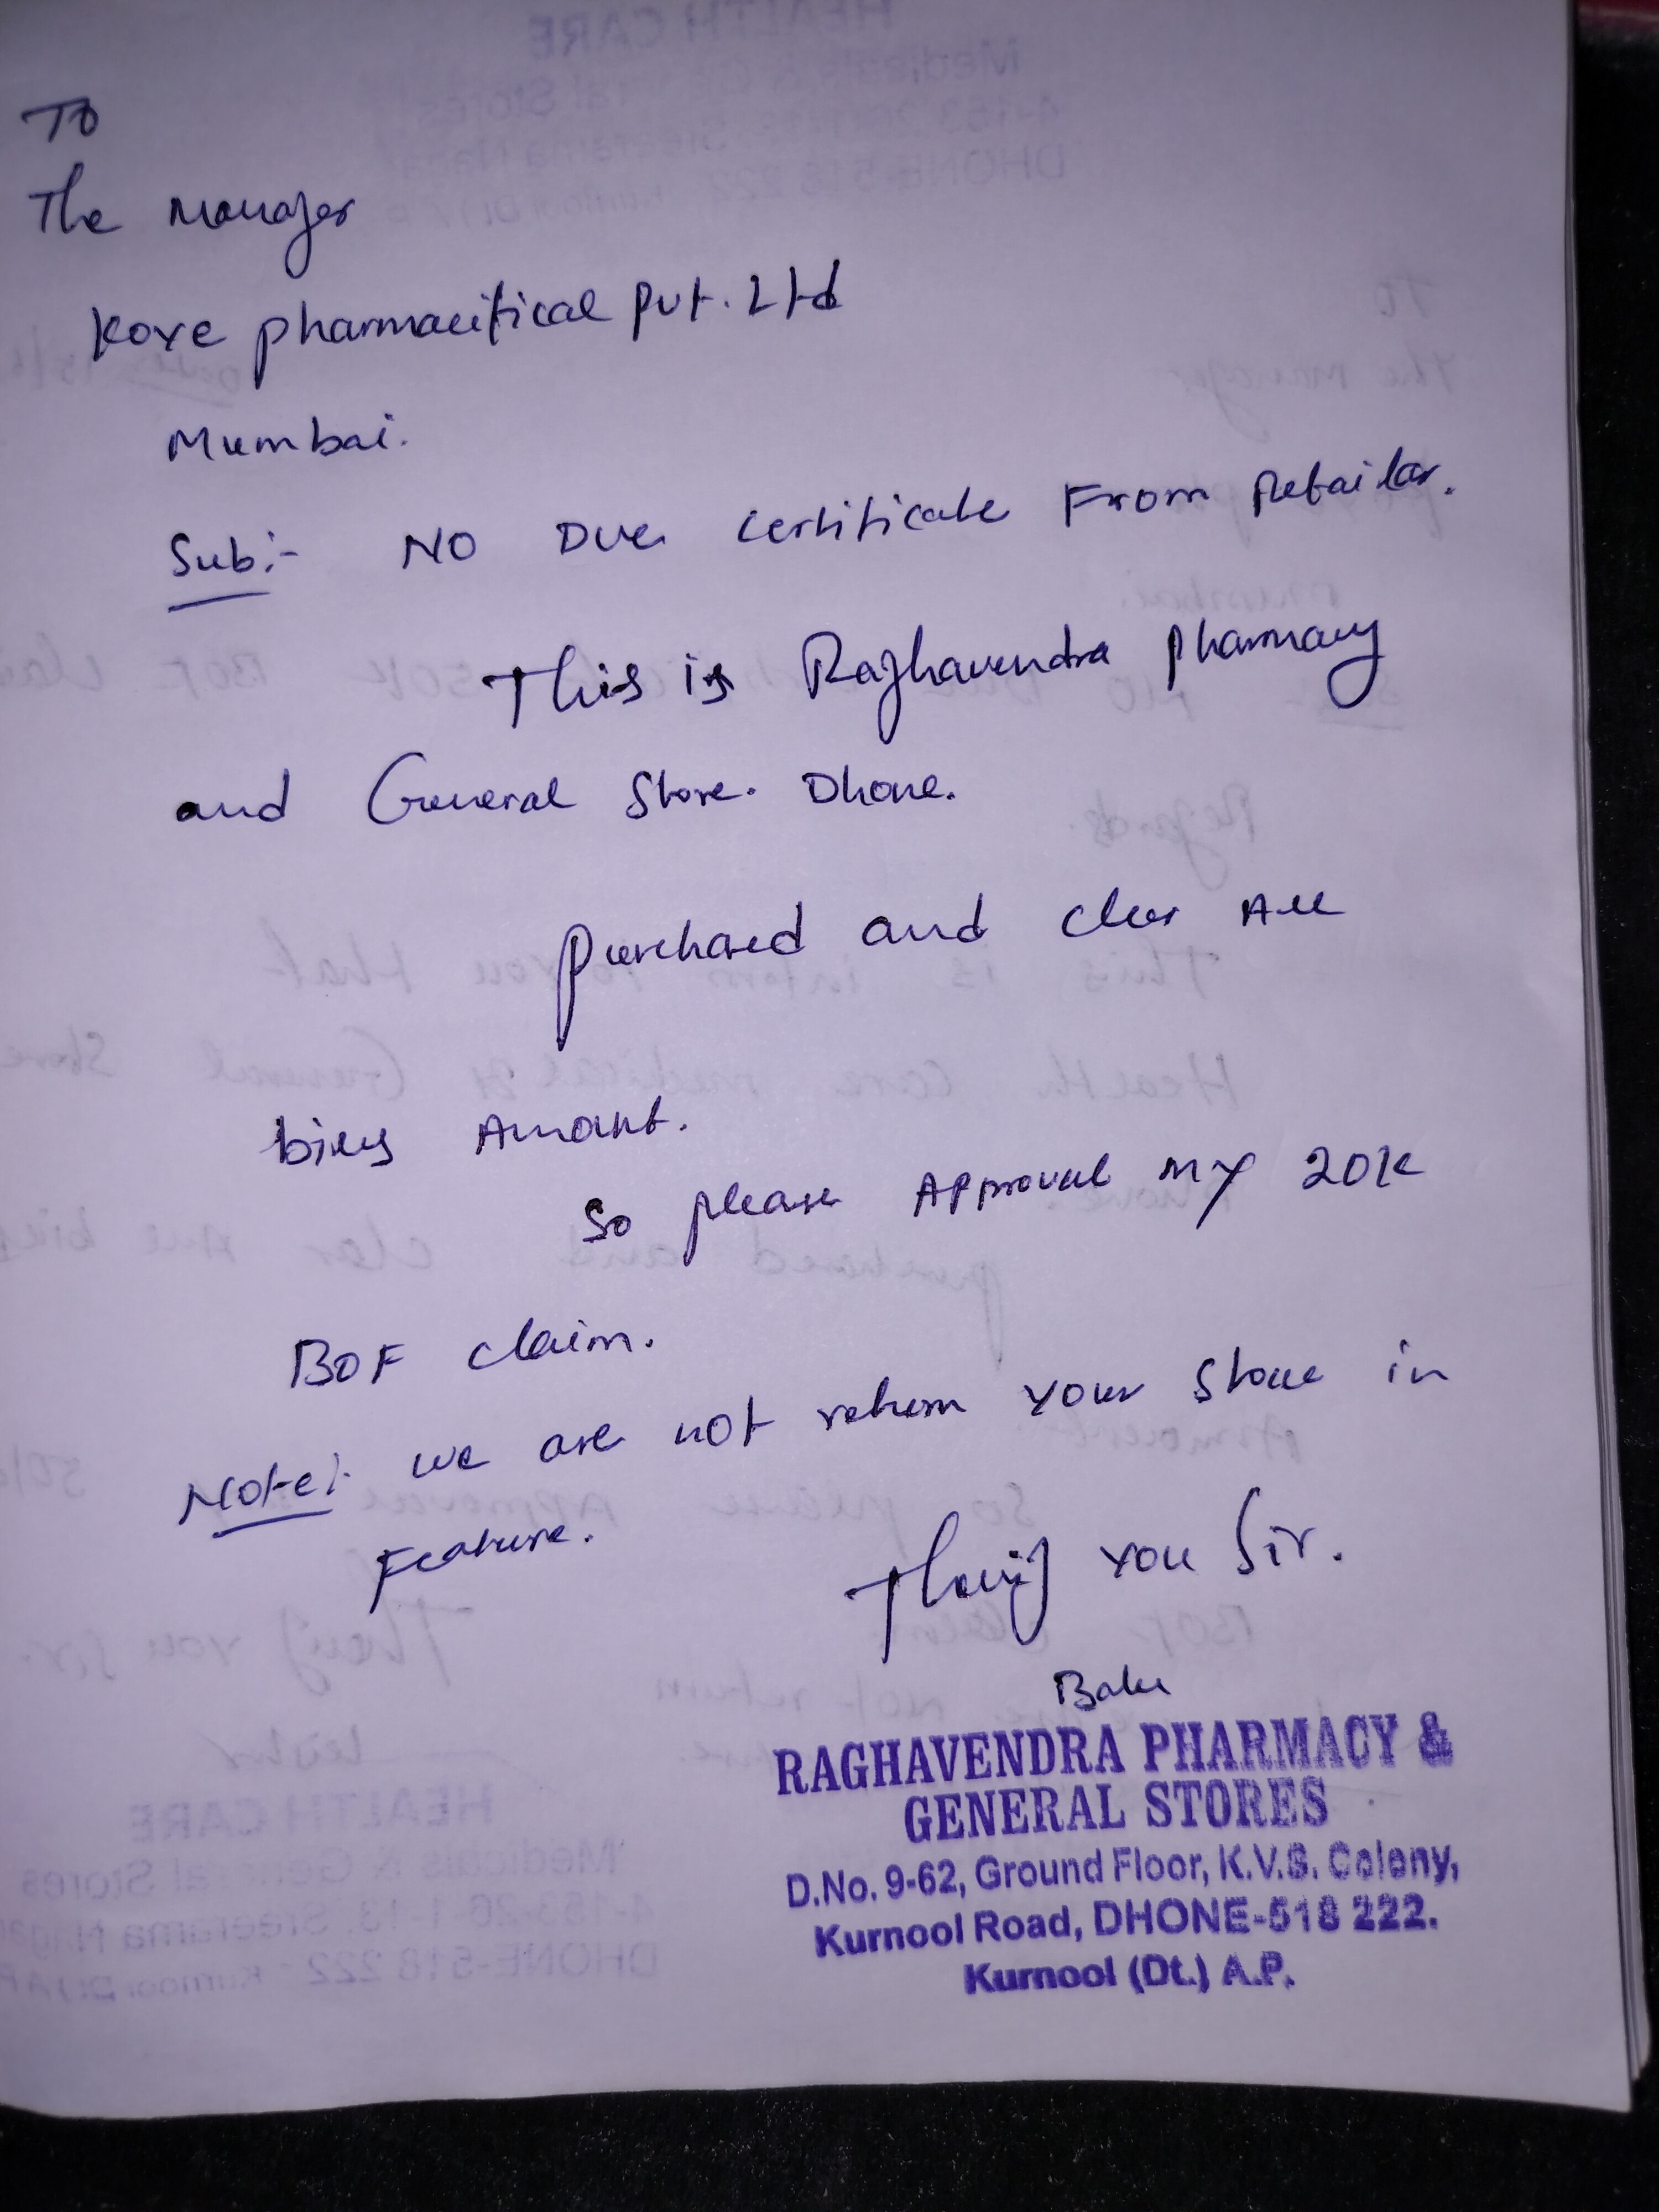 To
The manager
Kore pharmacitical Pvt. Ltd
Mumbai.
Sub:- NO Due certificate From Retailar.
This is Raghavendra pharmacy
and General Store. Dhone.
purchased and clear All
bills Amount.
So please Approval my 20K
BOF claim.
Note:- we are not return your Stoue in
Feature.
you Sir.
RAGHAVENDRA PHARMACY &
GENERAL STORES
D.No. 9-62, Ground Floor, K.V.S. Colony,
Kurnool Road, DHONE-518 222.
Kurnool (Dt.) A.P.